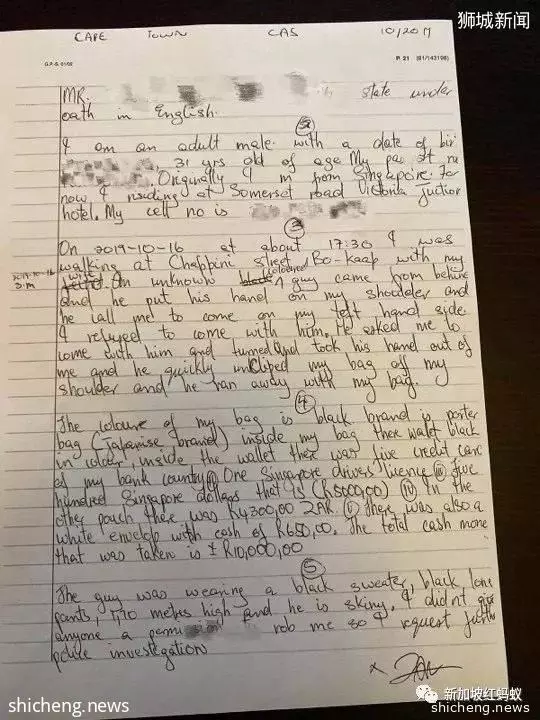 狮城新闻
CAPE TOWN CAS 10/2019
G.P.-S. 01/02 P. 21 (81/143198)
MR. state under
oath in English.
②
I am an adult male with a date of bir
31 yrs old of age My pas
Originally I m from Singapore. For
now I residing at Somerset road Victoria Juction
hotel. My cell no is
③
On 2019-10-16 at about 17:30 I was
walking at Chappini street, Bo-kaap with my
wife An unknown coloured guy came from behind
and he put his hand on my shoulder and
he call me to come on my left hand side.
I refused to come with him. He asked me to
come with him and turned and took his hand out of
me and he quickly uncliped my bag off my
shoulder and he ran away with my bag.
④
The coloure of my bag is black brand is porter
bag (Japanise brand) inside my bag there walet black
in colour, inside the wallet there was five credit card
of my bank country (ii) One Singapore drivers licence (iii) five
hundred Singapore dollars that is (R5000,00) (iv) In the
other pouch there was R4300,00 ZAR. (v) There was also a
white envelop with cash of R650,00. The total cash mone
that was taken is ± R10,000,00
⑤
The guy was wearing a black sweater, black long
pants, 1,70 metres high and he is skiny. I didnt give
anyone a permi rob me so I request further
police investigation
x
新加坡红蚂蚁
shicheng.news shicheng.news